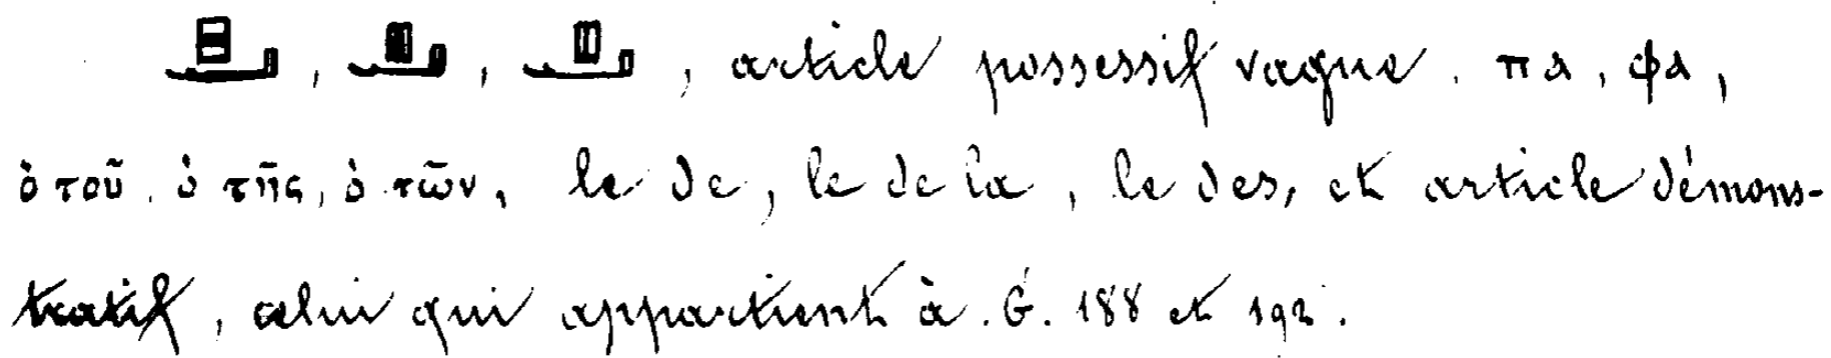 , , , article possessif vague. ⲡⲁ, ⲫⲁ,
ὁ τοῦ. ὁ τῆς, ὁ τῶν, le de, le de la, le des, et article démons-
tratif, celui qui appartient à. G. 188 et 192.